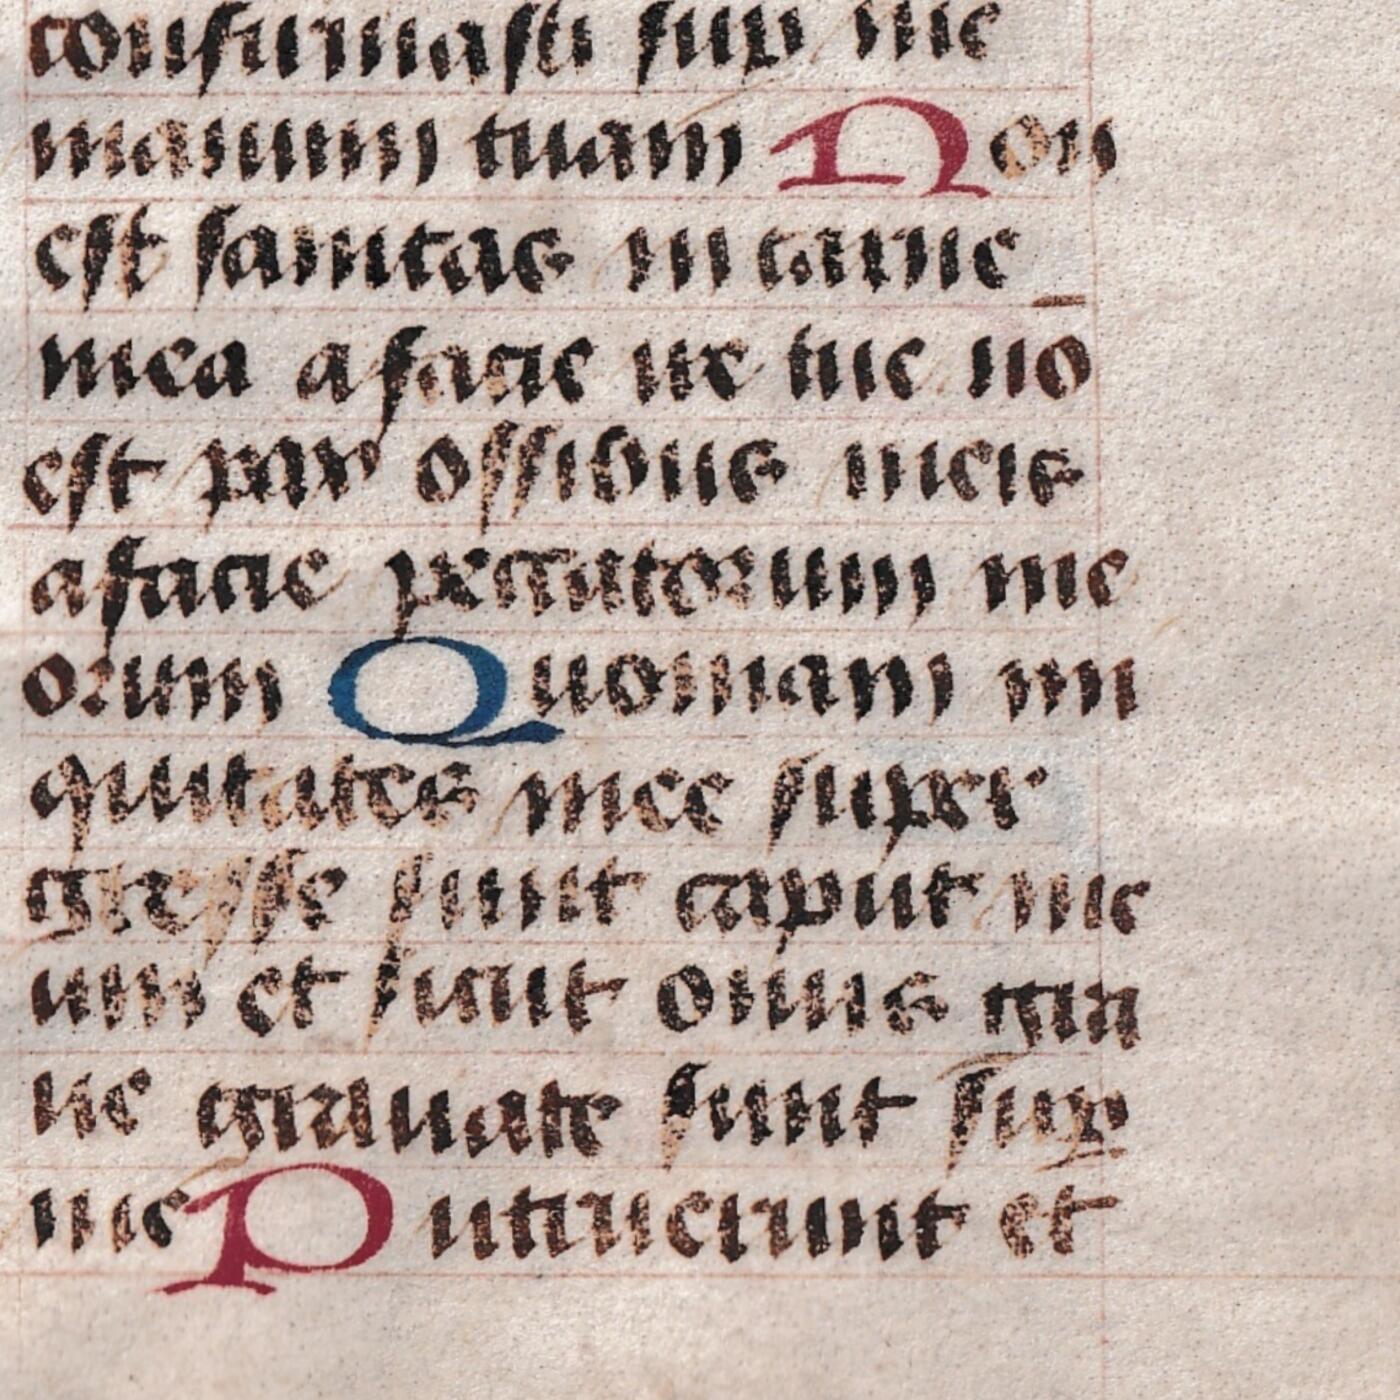 confirmasti sup me
manum tuam Non
est sanitas in carne
mea a facie ire tue nō
est pax ossibus meis
a facie peccatorum me
orum Quoniam ini
quitates mee super
gresse sunt caput me
um et sicut onus gra
ue grauate sunt suꝑ
me Putruerunt et